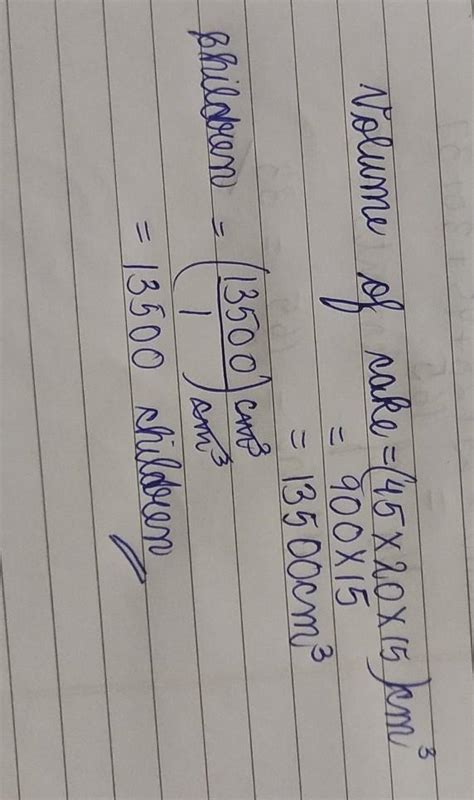 Volume of cake = (45 × 20 × 15) cm³
= 900 × 15
= 13500 cm³
children = (13500/1) cm³/cm³
= 13500 children